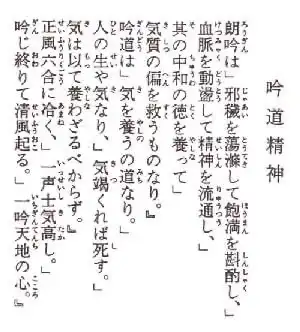 吟道精神
朗吟は」邪穢を蕩滌して飽満を斟酌し、」
血脈を動盪して精神を流通し、」
其の中和の徳を養って」
気質の偏を救うものなり。』
吟道は」気を養うの道なり。」
人の生や気なり、」気竭くれば死す。」
気は以て養わざるべからず。』
正風六合に冾く、」一声士気高し。」
吟じ終りて清風起る。」一吟天地の心。』